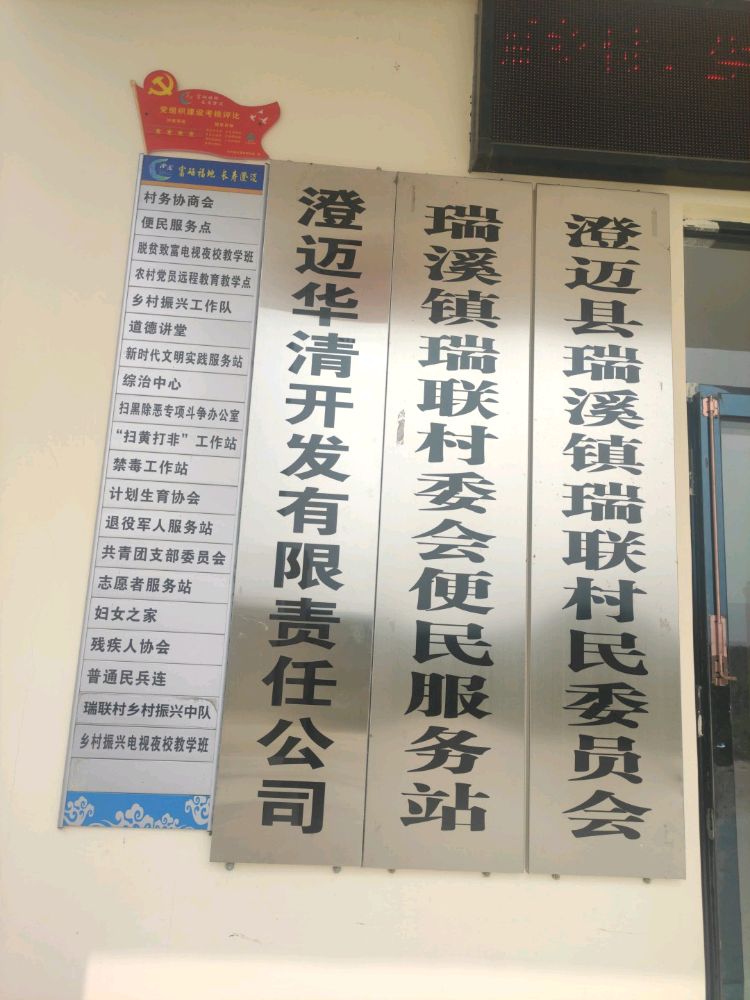 党组织建设考核评比
富硒福地 长寿澄迈
村务协商会
便民服务点
脱贫致富电视夜校教学班
农村党员远程教育教学点
乡村振兴工作队
道德讲堂
新时代文明实践服务站
综治中心
扫黑除恶专项斗争办公室
“扫黄打非”工作站
禁毒工作站
计划生育协会
退役军人服务站
共青团支部委员会
志愿者服务站
妇女之家
残疾人协会
普通民兵连
瑞联村乡村振兴中队
乡村振兴电视夜校教学班
澄迈华清开发有限责任公司
瑞溪镇瑞联村委会便民服务站
澄迈县瑞溪镇瑞联村民委员会